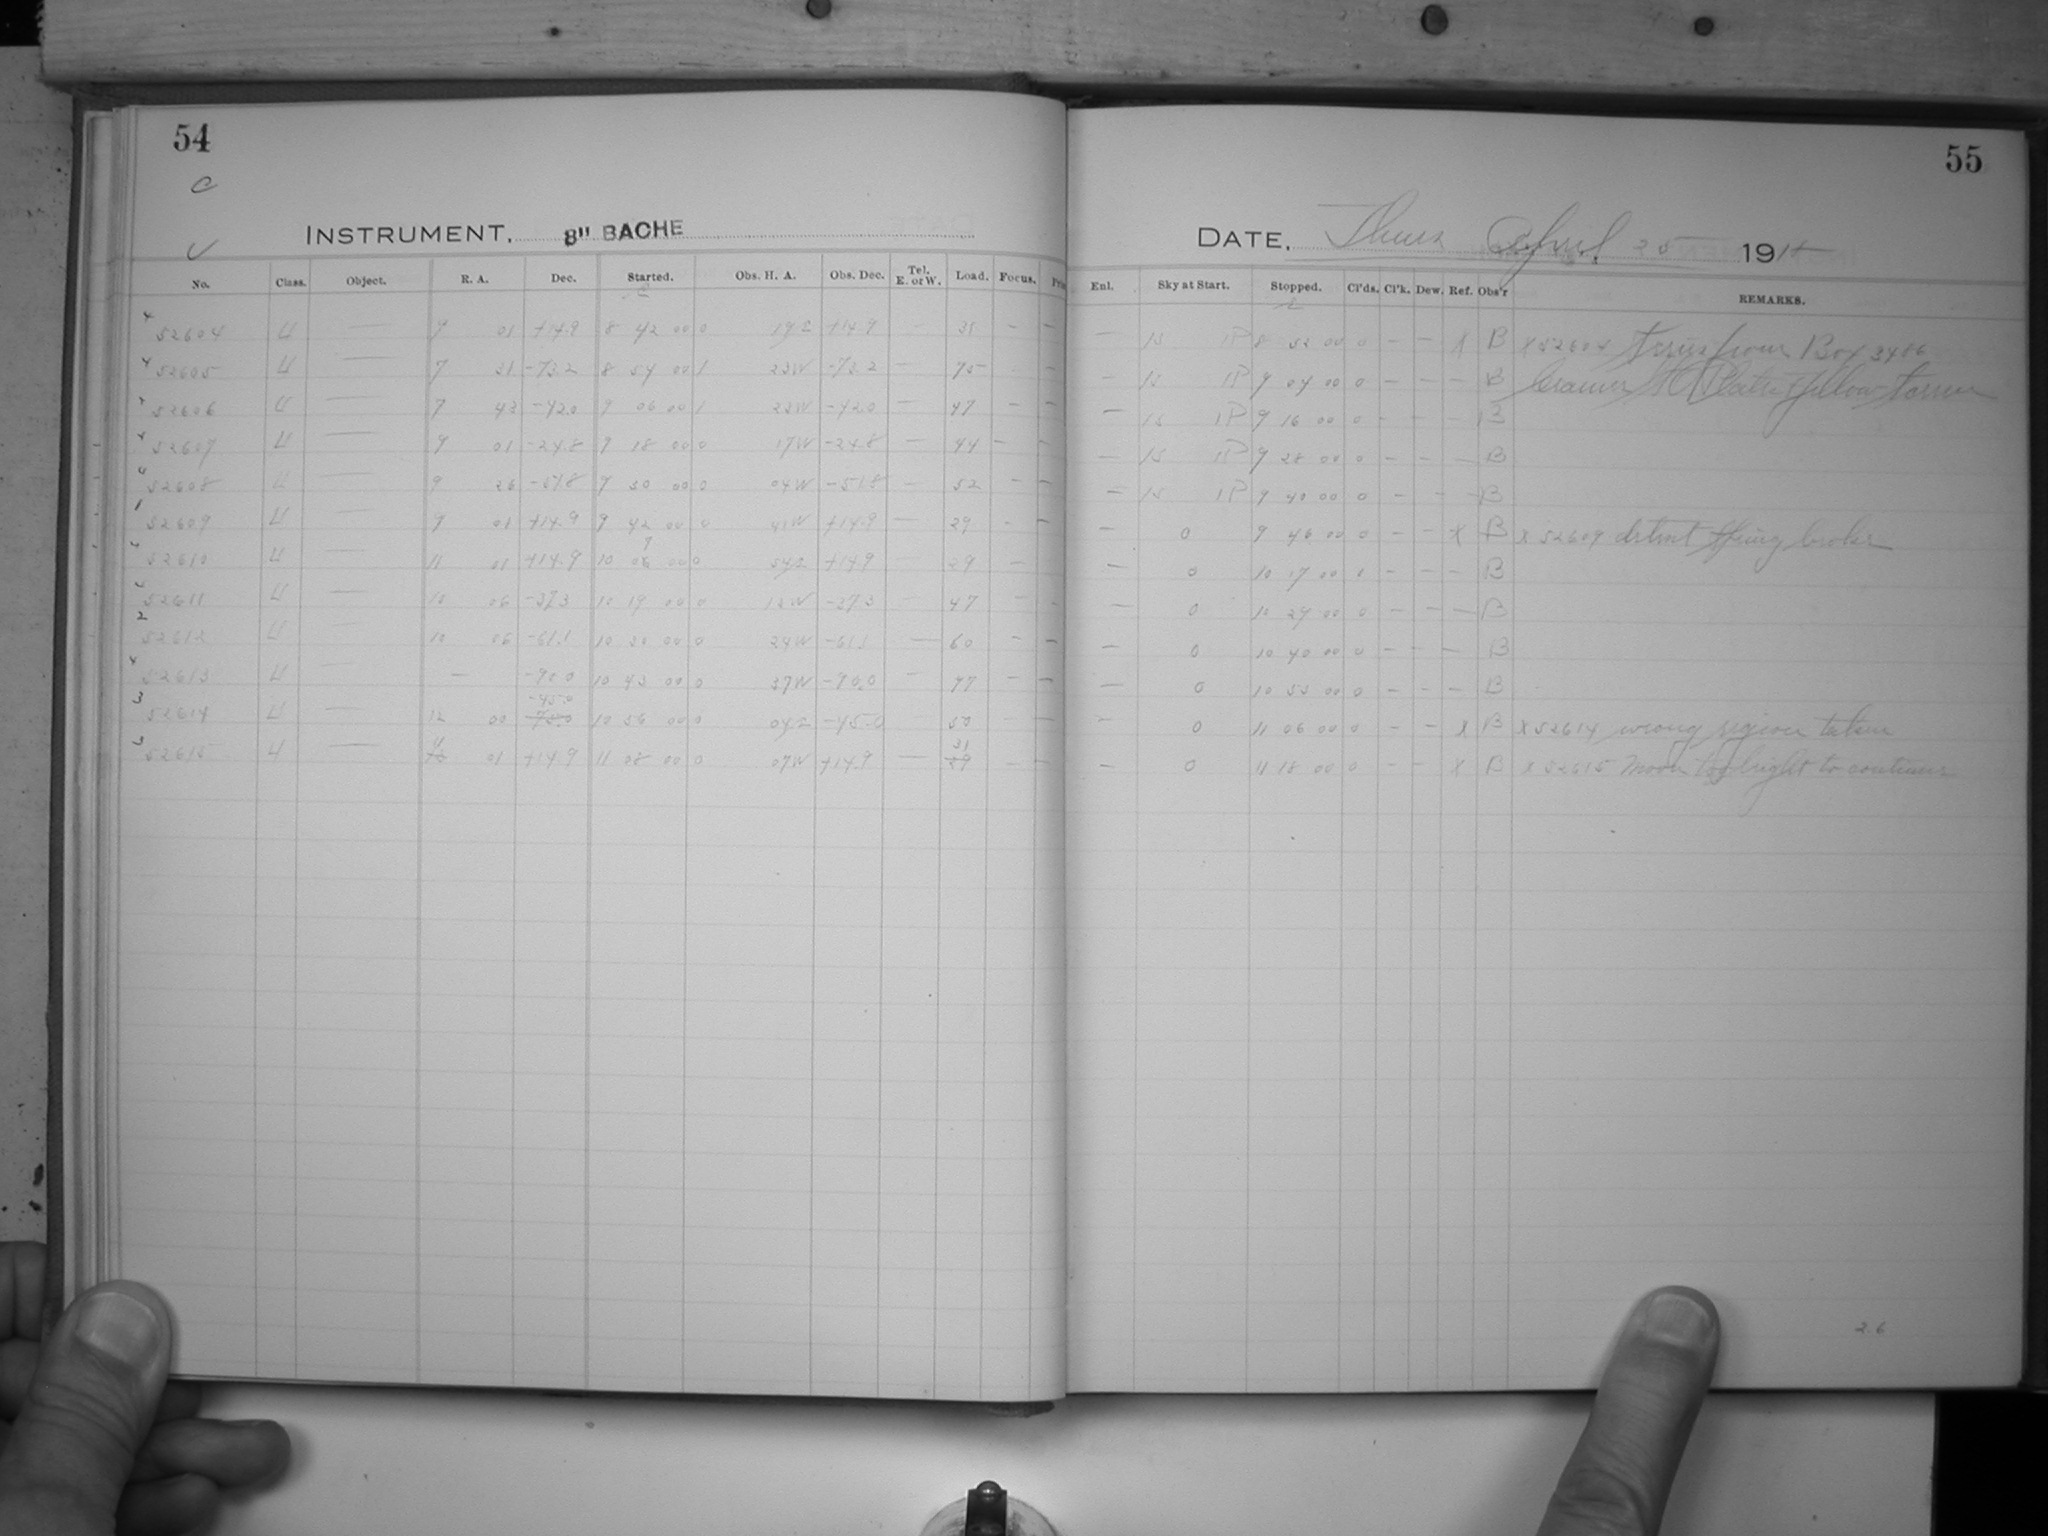 54
C
INSTRUMENT, 8" BACHE
No. Class. Object. R. A. Dec. Started. Obs. H. A. Obs. Dec. Tel. E. or W. Load. Focus.
52604 U — 9 01 +14.9 8 42 00 0 +14.9 — —
52605 U — 7 31 -73.2 8 54 00 1 23W -73.2 75 — —
52606 U — 7 43 -42.0 9 06 00 1 22W -42.0 — 47 — —
52607 U — 9 01 -24.8 9 18 00 0 17W -24.8 — 44 — —
52608 U — 9 26 -51.8 9 30 00 0 04W -51.8 — 52 — —
52609 U — 9 01 +14.9 9 42 00 0 41W +14.9 — 29 — —
52610 U — 11 01 +14.9 10 00 0 +14.9 29 —
52611 U — 10 06 -37.3 10 19 00 0 12W -37.3 47
52612 U — 10 06 -61.1 10 30 00 0 24W -61.1 — 60 — —
52613 U — — -90.0 10 43 00 0 37W -90.0 — 77 — —
52614 U — 12 00 -45.0 10 56 00 0 -45.0 — 50 — —
52615 U — 11 01 +14.9 11 08 00 0 07W +14.9 — 31 — —
55
DATE, Thurs April 25 1918
Enl. Sky at Start. Stopped. Cl'ds. Cl'k. Dew. Ref. Obs'r REMARKS.
— 15 1P 8 52 00 0 — — X B X 52604 from Box 3486
— 15 1P 9 04 00 0 — — — B Cramer Plate Yellow
— 15 1P 9 16 00 0 — — — B
— 15 1P 9 28 00 0 — — — B
— 15 1P 9 40 00 0 — — — B
— 0 9 46 00 0 — — X B X 52609 spring broke
— 0 10 17 00 0 — — — B
— 0 10 29 00 0 — — — B
— 0 10 40 00 0 — — — B
— 0 10 53 00 0 — — — B
— 0 11 06 00 0 — — X B X 52614 wrong region taken
— 0 11 18 00 0 — — X B X 52615 Moon too bright to continue
2.6